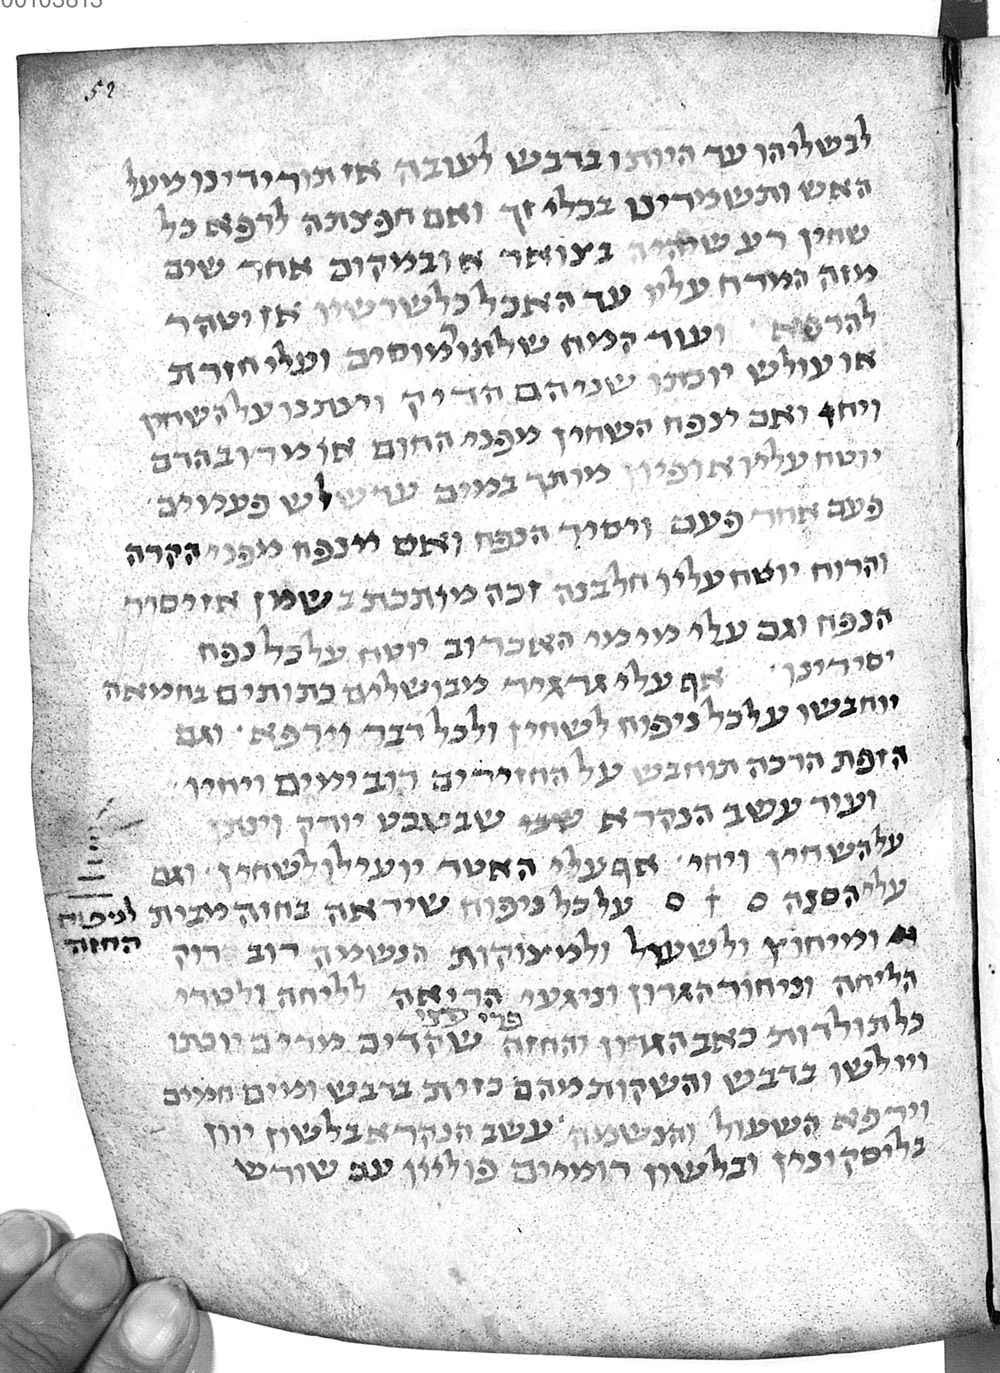 00103813
52
לבשליהו עד היותו בדבש לעובה אז תורידינו מעל
האש ותשמרינו בכלי זך ואם חפצתה לרפא כל
שחין רע שיהיה בצואר או במקום אחר שים
מזה המרח עליו עד האכל כל שרשיו אז יטהר
להרפא ועוד קמח שלתורמוסים ועלי חזרת
או עולש יוכתו שניהם הדיק וינתנו על השחין
ויחי ואם ינפח השחין מפני החום או מרוב הדם
יוטח עליו אופיון מותך במים עד שלש פעמים
פעם אחר פעם ויסיר הנפח ואם ינפח מפני הקרה
והרוח יוטח עליו חלבנה זכה מותכת בשמן אז יסיר
הנפח וגם עלי מימי האכרוב יוטח על כל נפח
יסירינו אף עלי גרגיר מבושלים כתותים בחמאה
יוחבשו על כל ניפוח לשחין ולכל דבר וירפא וגם
הזפת הרכה תוחבש על החזירים רוב ימים ויחיו
ועוד עשב הנקרא שבטבט יורק וינתן
על השחין ויחי אף עלי האטד יועילו לשחין וגם
עלי הסנה על כל ניפוח שיראה בחזה מבית
לניפוח
החזה
ומיחוץ ולשעול ולמצוקות הנשמה רוב רוק
הליחה וניחור הגרון וניגעי הריאה לליחה ולטרי
פרי עצי
כל תולדות כאב הגרון והחזה שקדים מרים יוכתו
ויולשו בדבש והשקות מהם כזית בדבש ומים חמים
וירפא השעול והנשמה עשב הנקרא בלשון יווז
בליסקונין ובלשון רומיים פוליון עם שורש